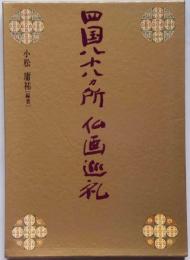 四国八十八ヵ所 仏画巡礼
小松 庸祐［編著］